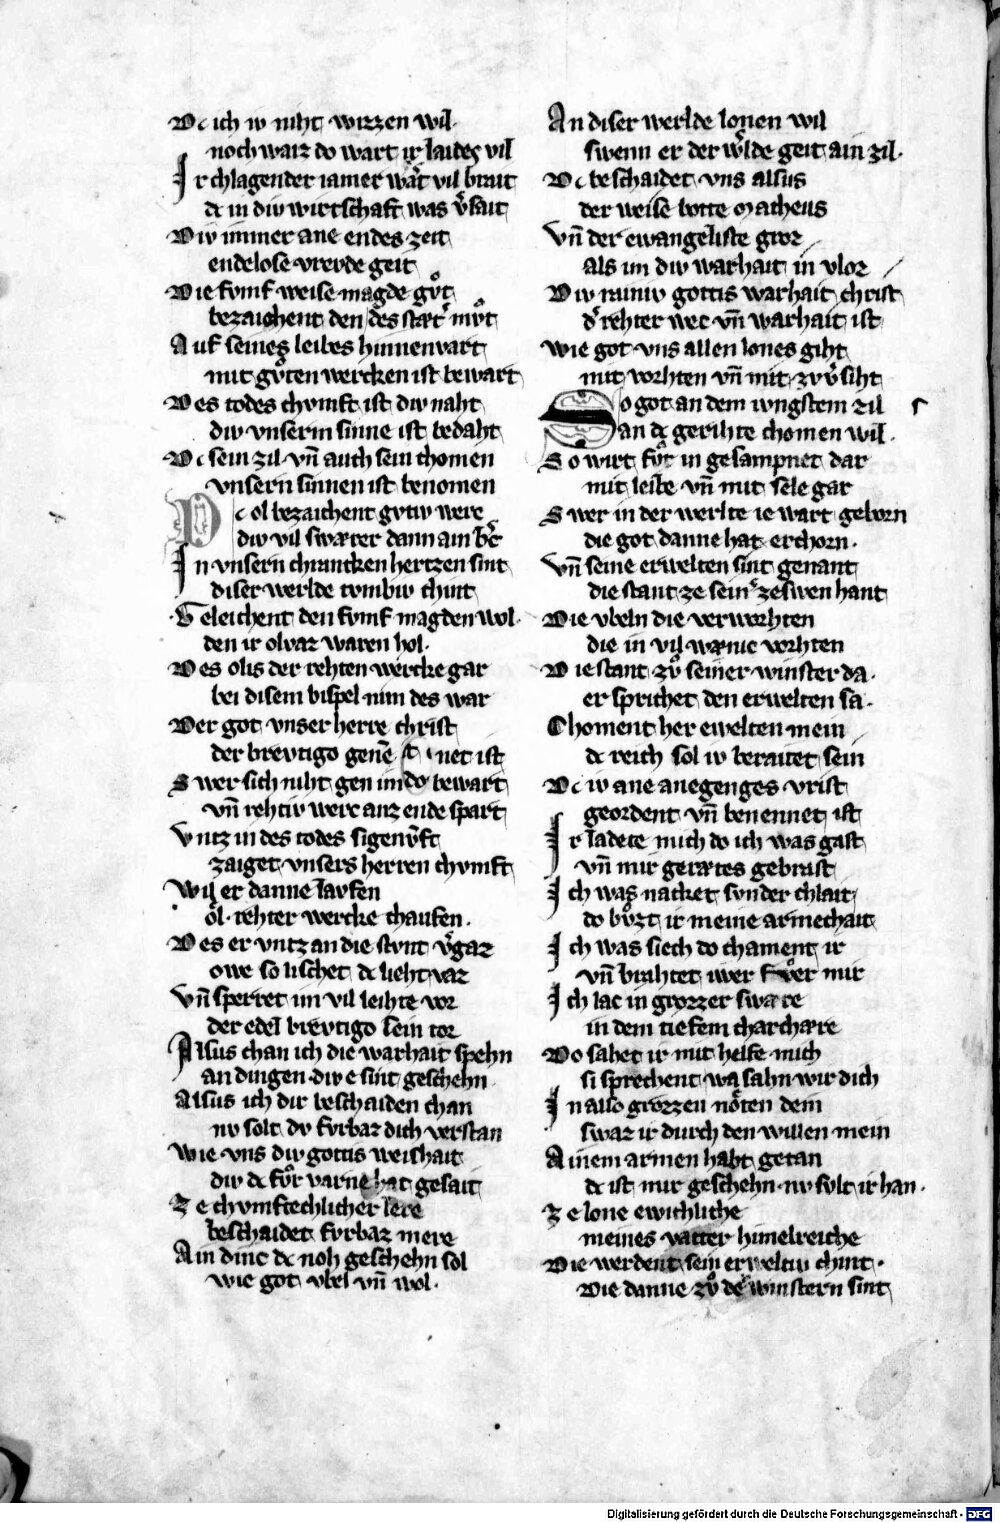 Dc ich iv niht wizzen wil
noch waiz do wart ir laides vil
Ir chlagender iamer wart vil brait
dc in div wirtschaft was v̾sait
Div immer ane endes zeit
endelose vrevde geit
Die fvmf weise magde gvͦt
bezaichent den des stæt̾ mvͦt
Auf seines leibes hinnenvart
mit gvͦten wercken ist bewart
Des todes chvmft ist div naht
div vnserm sinne ist bedaht
Dc sein zil vn̄ auch sein chomen
vnsern sinnen ist benomen
Dc ol bezaichent gvtiv werc
div vil swærer dann ain b̾c
In vnsern chrancken hertzen sint
diser werlde tvmbiv chint
Geleichent den fvmf magden wol
den ir olvaz waren hol
Des olis der rehten wercke gar
bei disem bispel nim des war
Der got vnser herre christ
der brevtigo genēnet ist
Swer sich niht gen im do bewart
vn̄ rehtiv werc anz ende spart
Vntz in des todes sigenvͦft
zaiget vnsers herren chvmft
Wil er danne lavfen
ol rehter wercke chaufen
Des er vntz an die stvnt v̾gaz
owe so lischet dc lieht vaz
Vn̄ sperret im vil leihte vor
der edel brevtigo sein tor
Alsus chan ich die warhait spehn
an dingen div e sint geschehn
Alsus ich dir beschaiden chan
nv solt dv fvrbaz dich verstan
Wie vns div gottis weishait
div dc fvͦr varne hat gesait
Ze chvmftechlicher lere
beschaidet fvrbaz mere
Ain dinc dc noh geschehn sol
wie got vbel vn̄ wol
An diser werlde lonen wil
swenn er der w̾lde geit ain zil
Dc beschaidet vns alsus
der weise botte Matheus
Vn̄ der ewangeliste groz
als im div warhait in vloz
Div rainiv gottis warhait christ
d̾ rehter wec vn̄ warhait ist
Wie got vns allen lones giht
mit vorhten vn̄ mit zvv̾siht
So got an dem ivngstem zil
an dc gerihte chomen wil
So wirt fvͦr in gesampnet dar
mit leibe vn̄ mit sele gar
Swer in der werlte ie wart geborn
die got danne hat erchorn
Vn̄ seine erwelten sint genant
die stant ze sein̾ zeswen hant
Die vbeln die verworhten
die in vil wænic vorhten
Die stant zvͦ seiner winster da
er sprichet den erwelten sa
Choment her ewelten mein
dc reich sol iv beraitet sein
Dc iv ane anegenges vrist
geordent vn̄ benennet ist
Ir ladete mich do ich was gast
vn̄ mir gerætes gebrast
Ich was nacket svnder chlait
do bvͦzt ir meine armechait
Ich was siech do chament ir
vn̄ brahtet iwer fvͦer mir
Ich lac in grozzer swære
in dem tiefem charchære
Do sahet ir mit helfe mich
si sprechent wa sahn wir dich
In also grozzen nöten dein
swaz ir durch den willen mein
Ainem armen habt getan
dc ist mir geschehn nv svlt ir han
Ze lone ewichliche
meines vatter himelreiche
Die werdent sein erweltiv chint
Die danne zvͦ de̾ winstern sint